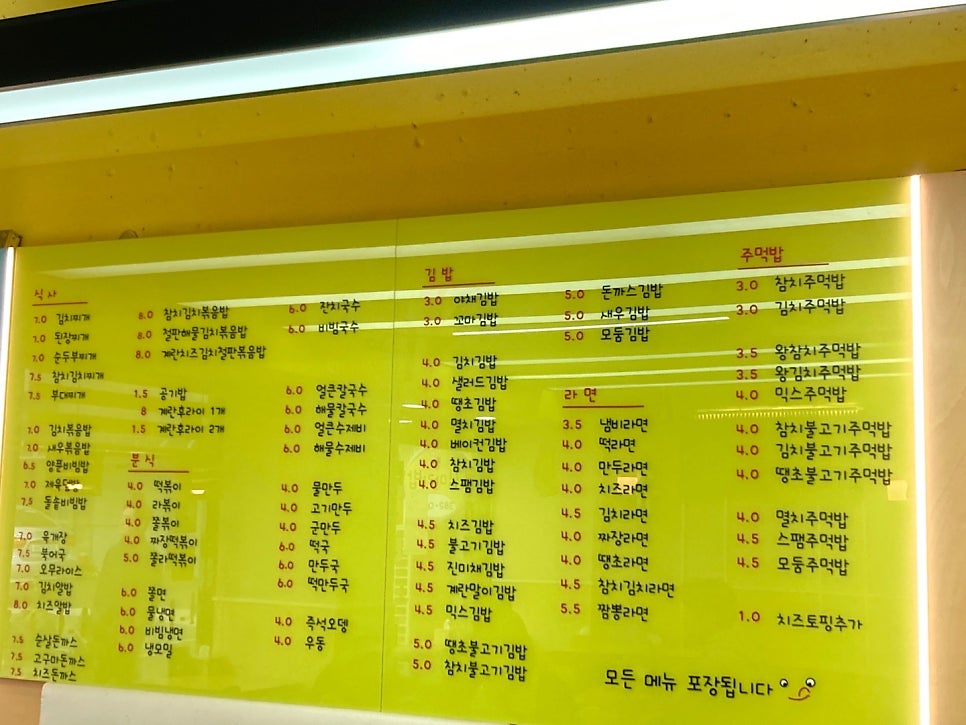 식사
7.0 김치찌개
7.0 된장찌개
7.0 순두부찌개
7.5 참치김치찌개
7.5 부대찌개
7.0 김치볶음밥
7.0 새우볶음밥
6.5 양푼비빔밥
7.0 제육덮밥
7.5 돌솥비빔밥
7.0 육개장
7.5 북어국
7.0 오무라이스
7.0 김치알밥
8.0 치즈알밥
7.5 순살돈까스
7.5 고구마돈까스
7.5 치즈돈까스
8.0 참치김치볶음밥
8.0 철판해물김치볶음밥
8.0 계란치즈김치철판볶음밥
1.5 공기밥
8 계란후라이 1개
1.5 계란후라이 2개
분식
4.0 떡볶이
4.0 라볶이
4.0 쫄볶이
4.0 짜장떡볶이
5.0 쫄라떡볶이
6.0 쫄면
6.0 물냉면
6.0 비빔냉면
6.0 냉모밀
6.0 잔치국수
6.0 비빔국수
6.0 얼큰칼국수
6.0 해물칼국수
6.0 얼큰수제비
6.0 해물수제비
4.0 물만두
4.0 고기만두
4.0 군만두
6.0 떡국
6.0 만두국
6.0 떡만두국
4.0 즉석오뎅
4.0 우동
김밥
3.0 야채김밥
3.0 꼬마김밥
4.0 김치김밥
4.0 샐러드김밥
4.0 땡초김밥
4.0 멸치김밥
4.0 베이컨김밥
4.0 참치김밥
4.0 스팸김밥
4.5 치즈김밥
4.5 불고기김밥
4.5 진미채김밥
4.5 계란말이김밥
4.5 믹스김밥
5.0 땡초불고기김밥
5.0 참치불고기김밥
5.0 돈까스김밥
5.0 새우김밥
5.0 모둠김밥
라면
3.5 냄비라면
4.0 떡라면
4.0 만두라면
4.0 치즈라면
4.5 김치라면
4.0 짜장라면
4.0 땡초라면
4.5 참치김치라면
5.5 짬뽕라면
주먹밥
3.0 참치주먹밥
3.0 김치주먹밥
3.5 왕참치주먹밥
3.5 왕김치주먹밥
4.0 믹스주먹밥
4.0 참치불고기주먹밥
4.0 김치불고기주먹밥
4.0 땡초불고기주먹밥
4.0 멸치주먹밥
4.5 스팸주먹밥
4.5 모둠주먹밥
1.0 치즈토핑추가
모든 메뉴 포장됩니다